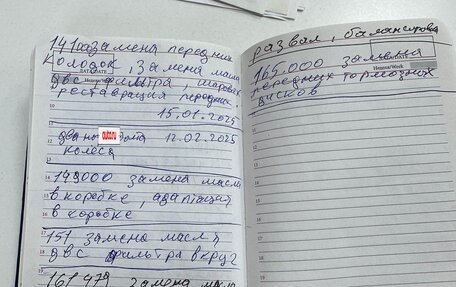 141000 замена передних
колодок, замена масла
двс фильтра, шаровых
реставрация передних.
15.01.2025
два но auto.ru 12.02.2025
колеса
149000 замена масла
в коробке, адаптация
в коробке
151 замена масла
двс фильтра вкруг
161 479 замена масла
развал, балансировка
165.000 замена
передних тормозных
дисков
DATA/DATE
Неделя/Week